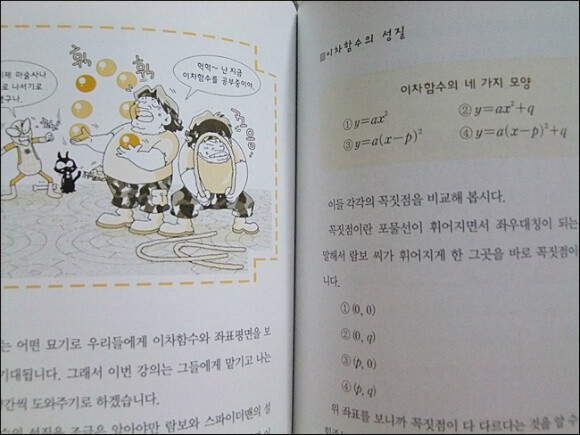 휙
휙
헉헉~ 난 지금
이차함수를 공부중이야.
구나.
어떤 묘기로 우리들에게 이차함수와 좌표평면을 보
기대됩니다. 그래서 이번 강의는 그들에게 맡기고 나는
간씩 도와주기로 하겠습니다.
성질을 조금은 알아야만 람보와 스파이더맨의 설
이차함수의 성질
이차함수의 네 가지 모양
① y=ax²
② y=ax²+q
③ y=a(x-p)²
④ y=a(x-p)²+q
이들 각각의 꼭짓점을 비교해 봅시다.
꼭짓점이란 포물선이 휘어지면서 좌우대칭이 되는
말해서 람보 씨가 휘어지게 한 그곳을 바로 꼭짓점이
니다.
① (0, 0)
② (0, q)
③ (p, 0)
④ (p, q)
위 좌표를 보니까 꼭짓점이 다 다르다는 것을 알 수